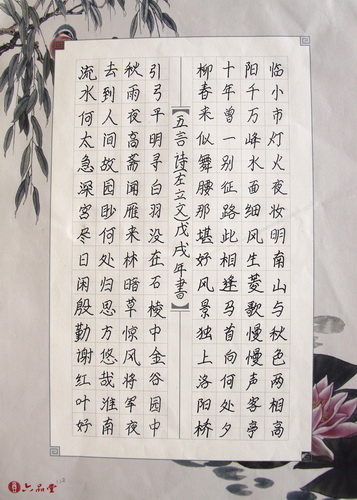 流水何太急深宫尽日闲殷勤谢红叶好
去到人间故园眇何处归思方悠哉淮南
秋雨夜高斋闻雁来林暗草惊风将军夜
引弓平明寻白羽没在石棱中金谷园中
【五言诗左立文戊戌年書】
柳春来似舞腰那堪好风景独上洛阳桥
十年曾一别征路此相逢马首向何处夕
阳千万峰水面细风生菱歌慢慢声客亭
临小市灯火夜妆明南山与秋色两相高
六品堂